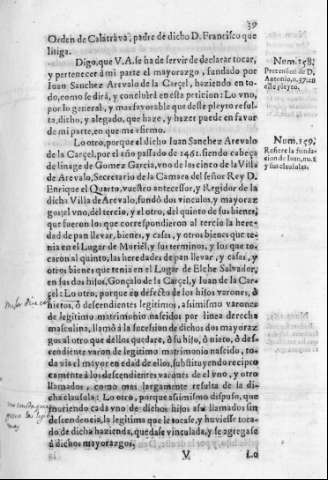 39
Orden de Calatrava, padre de dicho D. Francisco que
litiga.
Digo, que V. A. se ha de servir de declarar tocar,
y pertenecer á mi parte el mayorazgo, fundado por
Iuan Sanchez Arevalo de la Carçel, haziendo en to-
do, como se dirá, y concluirá en esta peticion: Lo vno,
por lo general, y mas favorable que deste pleyto resul-
ta, dicho, y alegado, que haze, y hazer puede en favor
de mi parte, en que me afirmo.
Lo otro, porque el dicho Iuan Sanchez Arevalo
de la Carçel, por el año passado de 1462. siendo cabeça
de linage de Gomez Garcia, vno de los cinco de la Villa
de Arevalo, Secretario de la Camara del señor Rey D.
Enrique el Quarto, vuestro antecessor, y Regidor de la
dicha Villa de Arevalo, fundó dos vinculos, y mayoraz
gos: el vno, del tercio, y el otro, del quinto de sus bienes,
que fueron los que correspondieron al tercio la here-
dad de pan llevar, bienes, y casas, y otros bienes que te-
nia en el Lugar de Muriel, y sus terminos, y los que to-
caron al quinto, las heredades de pan llevar, y casas, y
otros bienes que tenia en el Lugar de Elche Salvador,
en sus dos hijos, Gonçalo de la Carçel, y Iuan de la Car-
çel: Lo otro, porque en defecto de los hijos varones, ò
nietos, ò descendientes legitimos, asimismo varones
de legitimo matrimonio nascidos por linea derecha
masculina, llamò á la sucesion de dichos dos mayoraz
gos al otro que dellos quedare, ò su hijo, ò nieto, ò des-
cendiente varon de legitimo matrimonio nascido, to-
da via el mayor en edad de ellos, substituyendo recipro
camente á los descendientes varones de el vno, y otro
llamados, como mas largamente resulta de la di-
cha clausula: Lo otro, porque asimismo dispuso, que
muriendo cada vno de dichos hijos asi llamados sin
descendencia, la legitima que le tocase, y huviesse toca-
do de dicha hazienda, quedase vinculada, y se agregase
á dichos mayorazgos.
V
Lo
Num. 158.
Pretension de D.
Antonio, n. 57. en
este pleyto.
Num. 159.
Refiere la funda-
cion de Iuan, nu. 1
y sus clausulas.